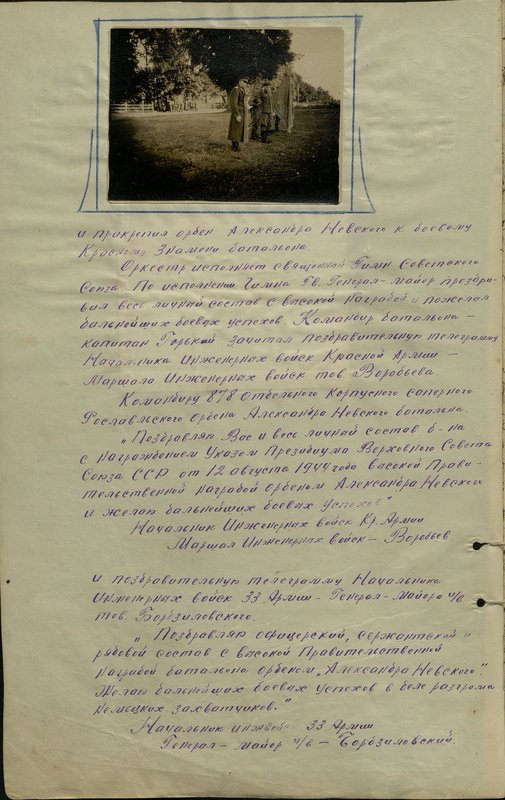 и прикрепил орден Александра Невского к боевому
Красному Знамени батальона.
Оркестр исполняет священный Гимн Советского
Союза. По исполнении Гимна Гв. Генерал-майор проздра-
вил весь личный состав с высокой наградой и пожелал
дальнейших боевых успехов. Командир батальона –
капитан Горький зачитал поздравительную телеграмму
Начальника Инженерных войск Красной Армии –
Маршала Инженерных войск тов. Воробьева.
Командиру 878 отдельного Корпусного саперного
Рославльского ордена Александра Невского батальона.
„Поздравляю Вас и весь личный состав б-на
с награждением Указом Президиума Верховного Совета
Союза ССР от 12 августа 1944 года высокой Прави-
тельственной наградой орденом Александра Невского
и желаю дальнейших боевых успехов"
Начальник Инженерных войск Кр. Армии
Маршал Инженерных войск – Воробьев.
и поздравительную телеграмму Начальника
Инженерных войск 33 Армии – Генерал-Майора и/в
тов. Бордзиловского.
„Поздравляю офицерский, сержантский и
рядовой состав с высокой Правительственной
наградой батальона орденом „Александра Невского".
Желаю дальнейших боевых успехов в деле разгрома
немецких захватчиков."
Начальник инжвойск 33 Армии
Генерал – майор и/в – Бордзиловский.